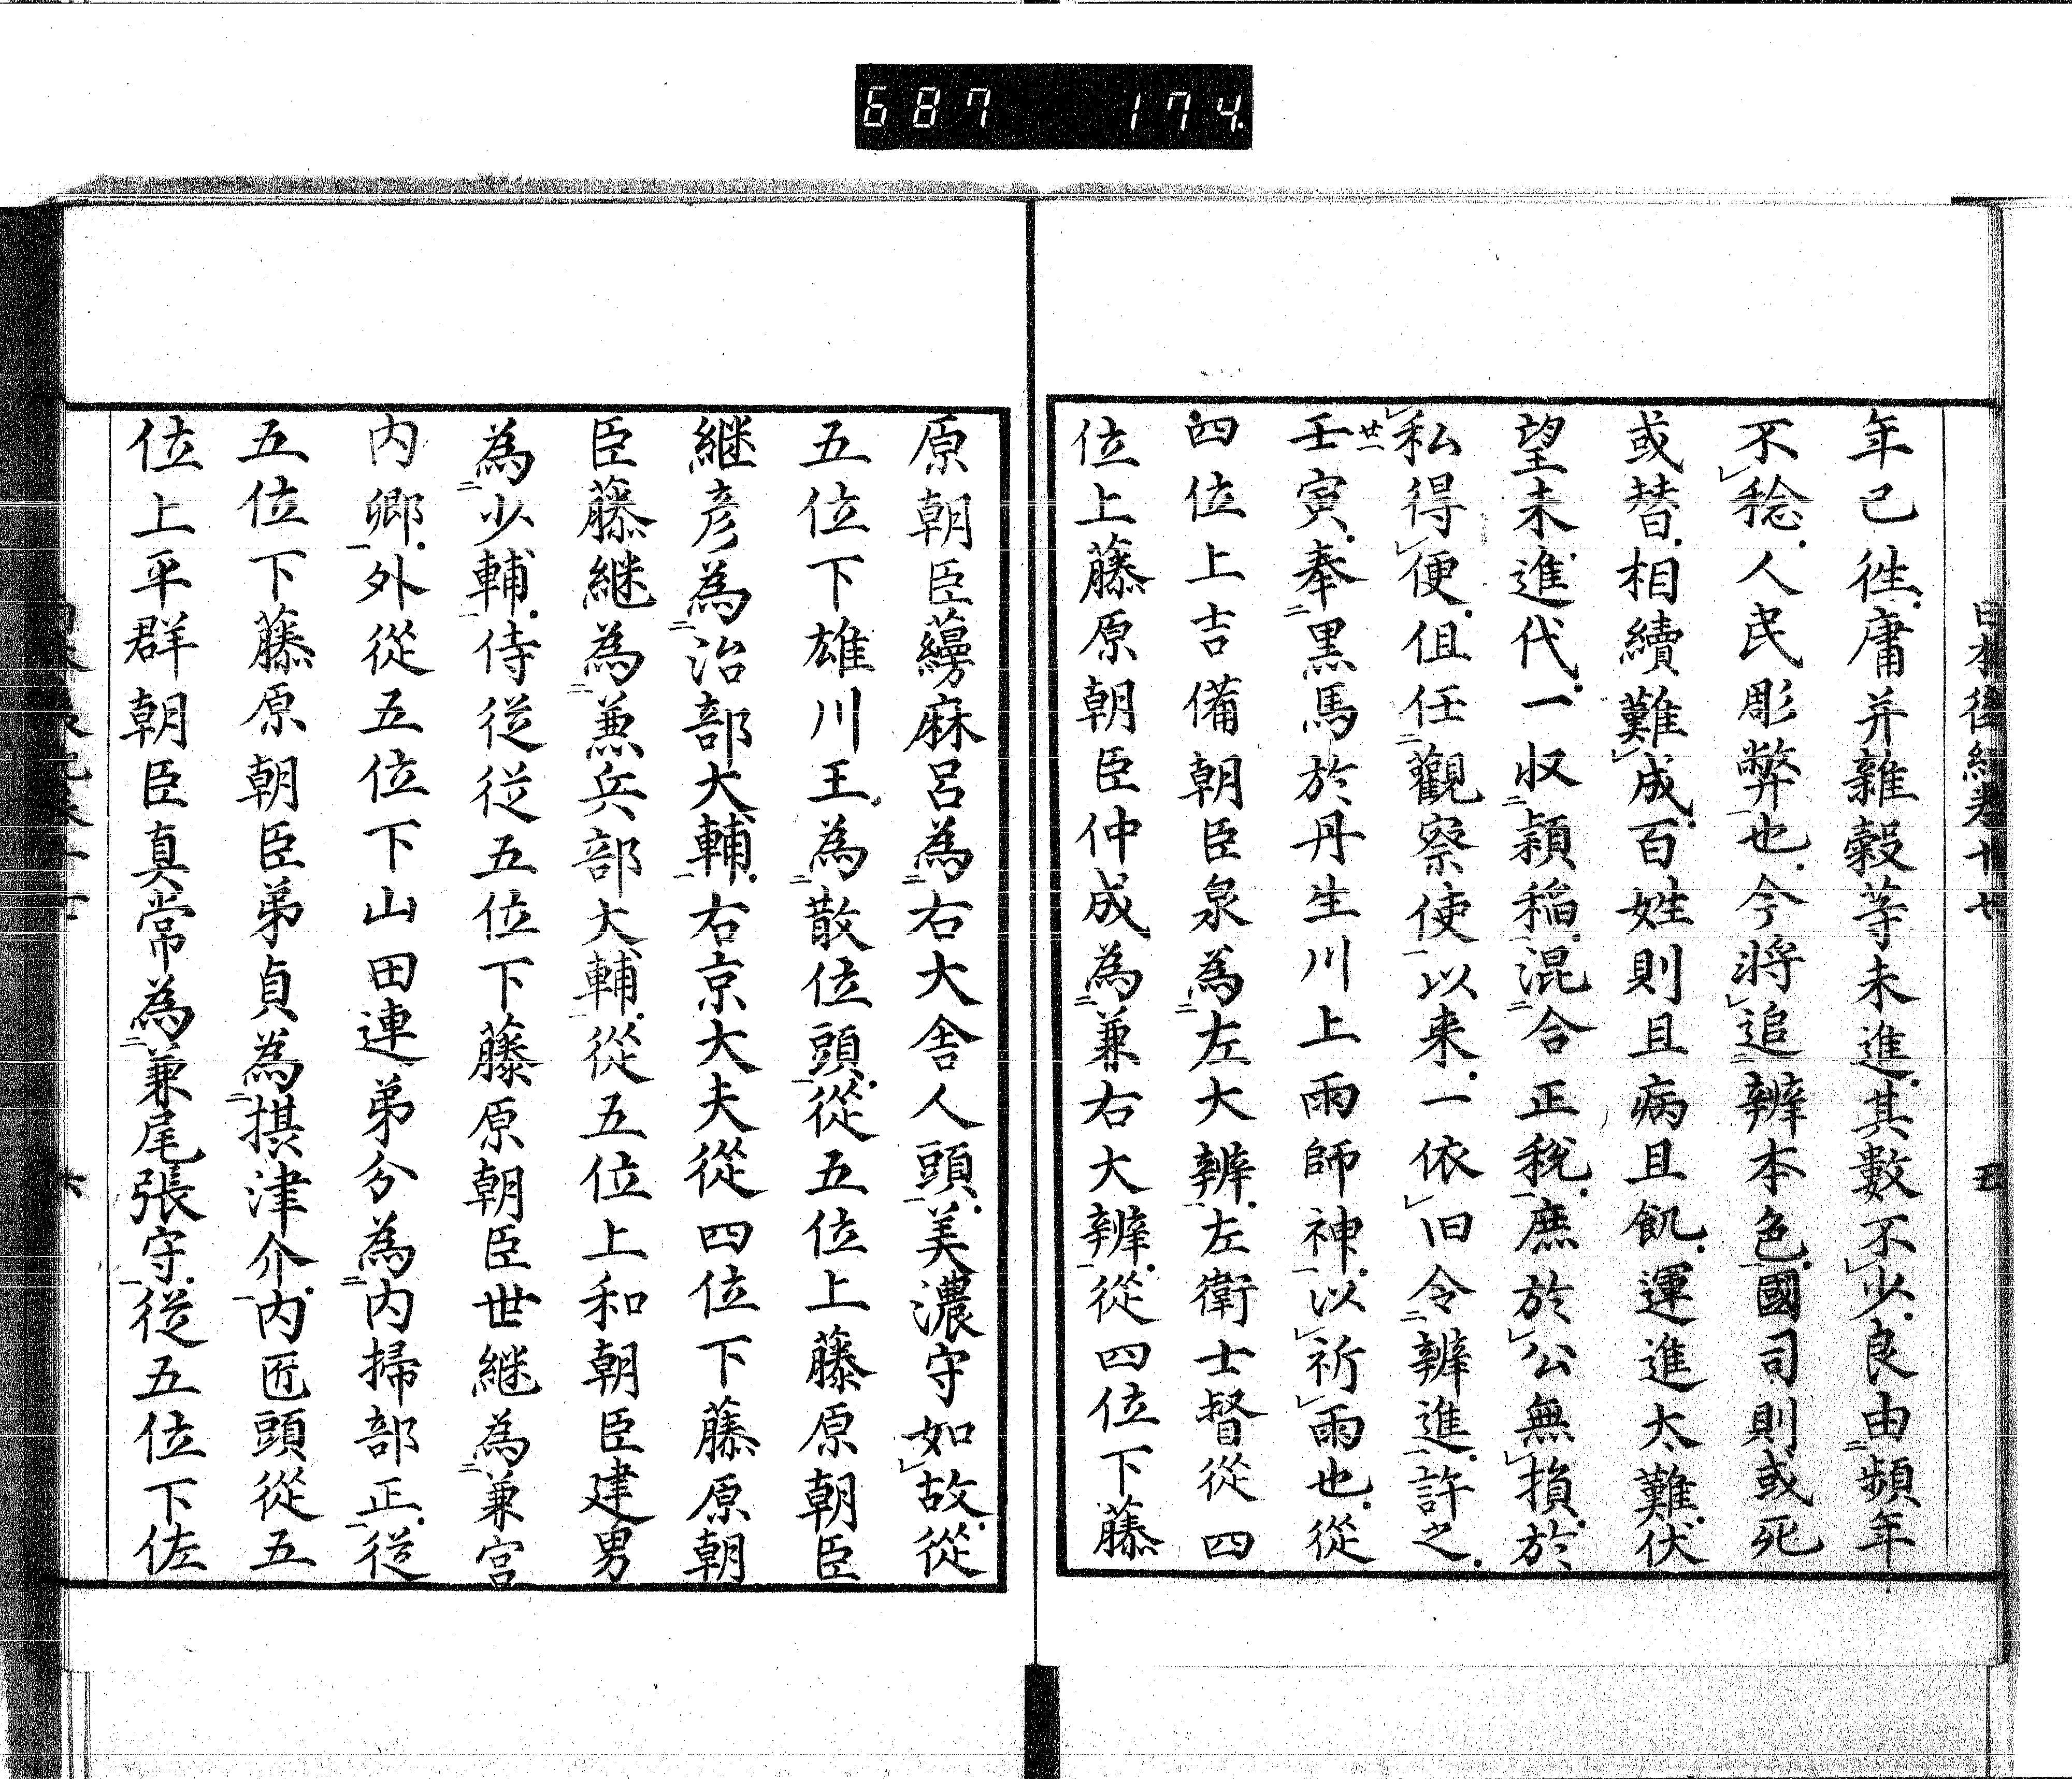 687 174
日本後紀卷十七 五
年已徃庸并雜穀等未進其數不少良由頻年
不稔人民彫弊也今將追辨本色國司則或死
或替相續難成百姓則且病且飢運進太難伏
望未進代一収穎稲混合正税庶於公無損於
私得便但任觀察使以来一依旧令辨進許之
廿一
壬寅奉黒馬於丹生川上雨師神以祈雨也從
四位上吉備朝臣泉為左大辨左衛士督從四
位上藤原朝臣仲成為兼右大辨從四位下藤
原朝臣蘰麻呂為右大舎人頭美濃守如故從
五位下雄川王為散位頭從五位上藤原朝臣
継彦為治部大輔右京大夫從四位下藤原朝
臣藤継為兼兵部大輔從五位上和朝臣建男
為少輔侍従従五位下藤原朝臣世継為兼宮
内卿外從五位下山田連弟分為内掃部正従
五位下藤原朝臣弟貞為摂津介内匠頭從五
位上平群朝臣真常為兼尾張守従五位下佐
六